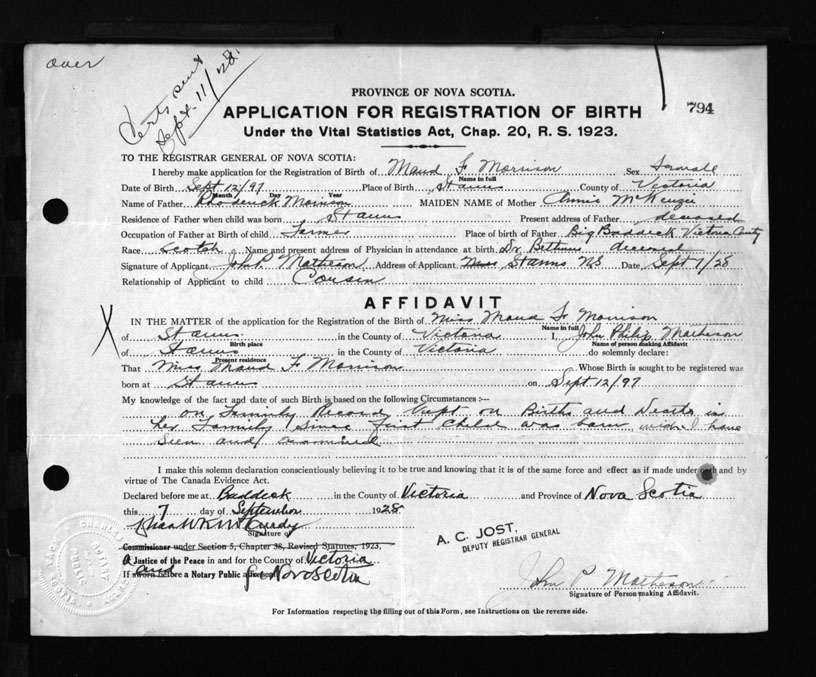 over
Certs sent
Sept. 11/28.
PROVINCE OF NOVA SCOTIA.
794
APPLICATION FOR REGISTRATION OF BIRTH
Under the Vital Statistics Act, Chap. 20, R. S. 1923.
TO THE REGISTRAR GENERAL OF NOVA SCOTIA:
I hereby make application for the Registration of Birth of Maud F Morrison Sex Female
Name in full
Date of Birth Sept 12/97 Place of Birth St anns County of Victoria
Month Day Year
Name of Father Rhoderick Morrison MAIDEN NAME of Mother Annie McKenzie
Residence of Father when child was born St anns Present address of Father deceased
Occupation of Father at Birth of child Farmer Place of birth of Father Big Baddeck Victoria County
Race Scotch Name and present address of Physician in attendance at birth Dr Bethune deceased
Signature of Applicant John P. Matheson Address of Applicant St anns NS Date Sept 7/28
Relationship of Applicant to child Cousin
AFFIDAVIT
IN THE MATTER of the application for the Registration of the Birth of Miss Maud F Morrison
Name in full
of St anns in the County of Victoria I, John Philip Matheson
Birth place Name of person making Affidavit
of St anns in the County of Victoria do solemnly declare:
Present residence
That Miss Maud F Morrison Whose Birth is sought to be registered was
born at St anns on Sept 12/97
My knowledge of the fact and date of such Birth is based on the following Circumstances :—
on Family Record Kept on Births and Deaths in
her Family Since First Child was born which I have
Seen and examined
I make this solemn declaration conscientiously believing it to be true and knowing that it is of the same force and effect as if made under oath and by
virtue of The Canada Evidence Act.
Declared before me at Baddeck in the County of Victoria and Province of Nova Scotia
this 7 day of September 1928
Signature of
A. C. JOST,
DEPUTY REGISTRAR GENERAL
Commissioner under Section 5, Chapter 38, Revised Statutes, 1923,
A Justice of the Peace in and for the County of Victoria
If sworn before a Notary Public and for Nova Scotia
John P Matheson
Signature of Person making Affidavit.
For Information respecting the filling out of this Form, see Instructions on the reverse side.